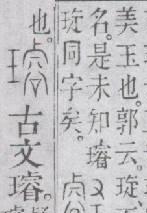 美玉也。郭云。璇
名。是未知璿又
璇同字矣。
也。
古文璿。